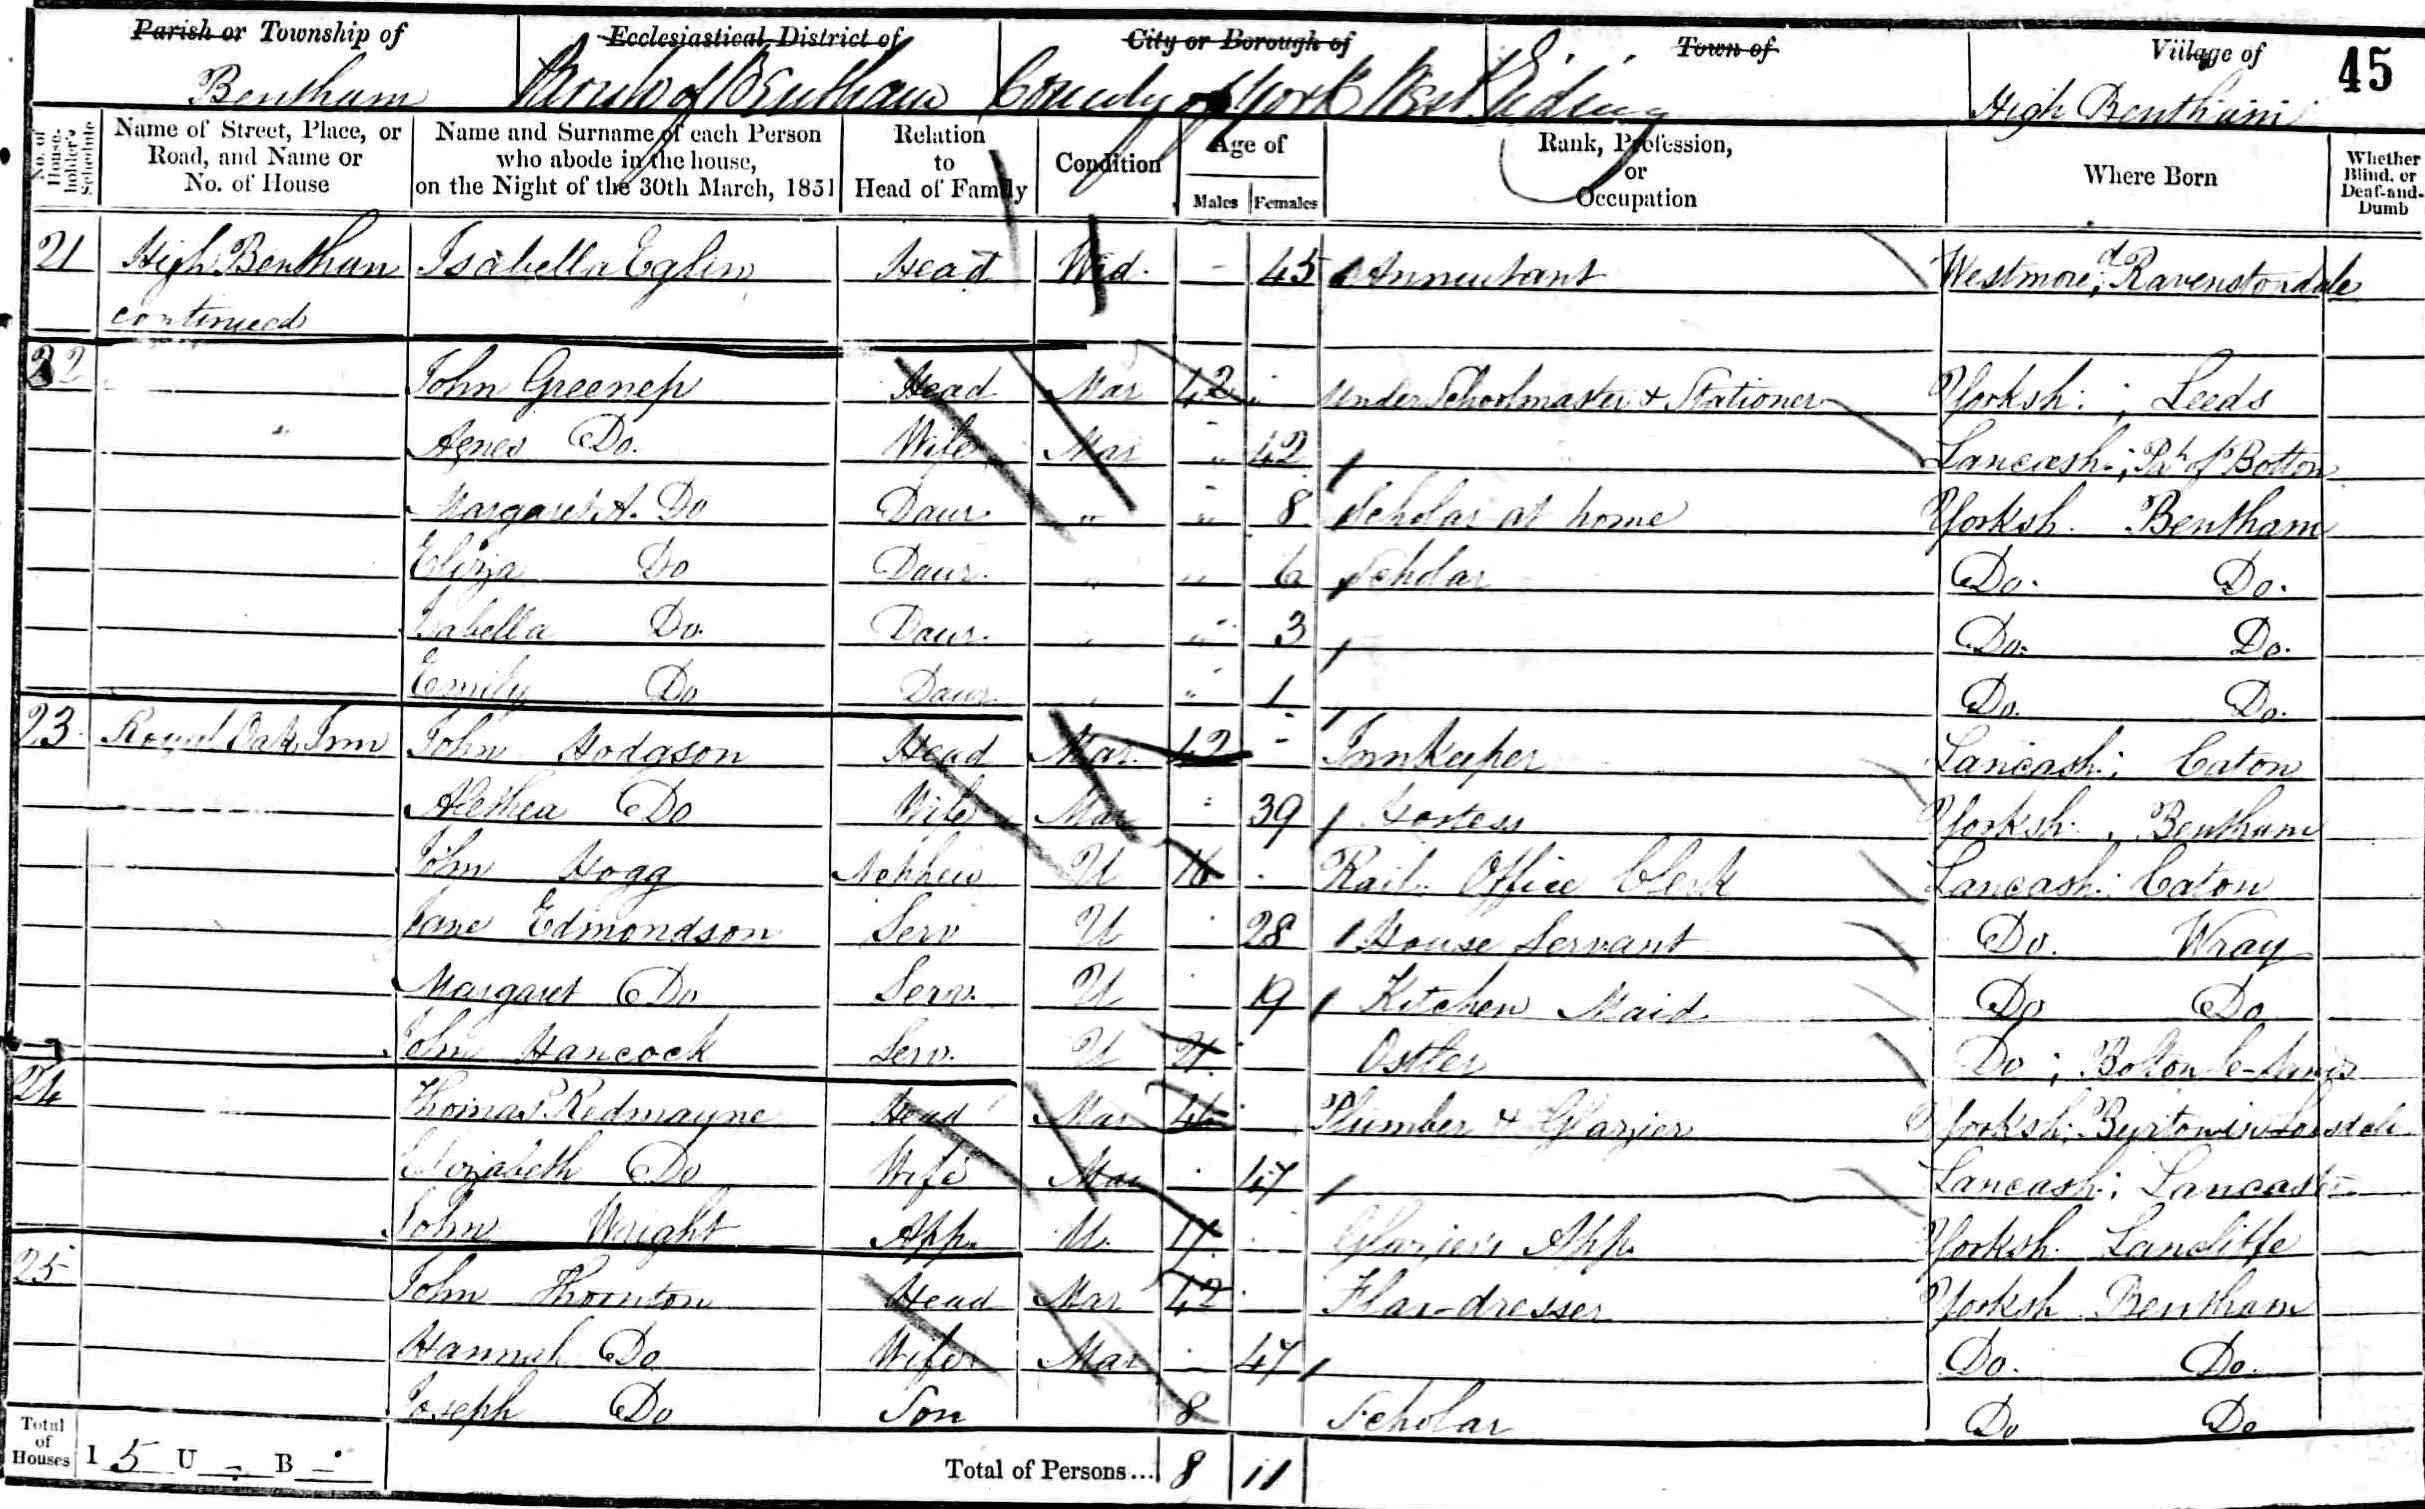 Parish or Township of Ecclesiastical District of City or Borough of Town of Village of 45
Bentham of Bentham County of York West Riding High Bentham
No. of House-holder's Schedule Name of Street, Place, or Road, and Name or No. of House Name and Surname of each Person who abode in the house, on the Night of the 30th March, 1851 Relation to Head of Family Condition Age of Males Females Rank, Profession, or Occupation Where Born Whether Blind, or Deaf-and-Dumb
21 High Bentham Isabella Eglin Head Wid. - 45 Annuitant Westmore;d Ravenstondale
continued
22 John Greenep Head Mar 42 Under Schoolmaster & Stationer Yorksh: ; Leeds
Agnes Do. Wife Mar " 42 Lancash: ; Ph of Bolton
Margaret A. Do Daur. " " 8 Scholar at home Yorksh. Bentham
Eliza Do Daur. " " 6 Scholar Do. Do.
Isabella Do. Daur. " " 3 Do. Do.
Emily Do Daur. " " 1 Do. Do.
23 Royal Oak Inn John Hodgson Head Mar. 42 - Innkeeper Lancash: ; Caton
Alethea Do Wife Mar - 39 Hostess Yorksh: ; Bentham
John Hogg Nephew U 16 Rail. Office Clerk Lancash: Caton
Jane Edmondson Serv U 28 House Servant Do. Wray
Margaret Do Serv. U 19 Kitchen Maid Do Do
John Hancock Serv. U 21 Ostler Do ; Bolton le-Sands
24 Thomas Redmayne Head Mar Plumber & Glazier Yorksh: Burton in Lonsdale
Elizabeth Do Wife Mar 47 Lancash: ; Lancaster
John Wright App. U. 17 Glazier's App. Yorksh. Langcliffe
25 John Thornton Head Mar 42 Flax-dresser Yorksh Bentham
Hannah Do Wife Mar - 47 Do. Do.
Joseph Do Son 8 Scholar Do Do
Total of Houses 1 5 U - B - Total of Persons... 8 11